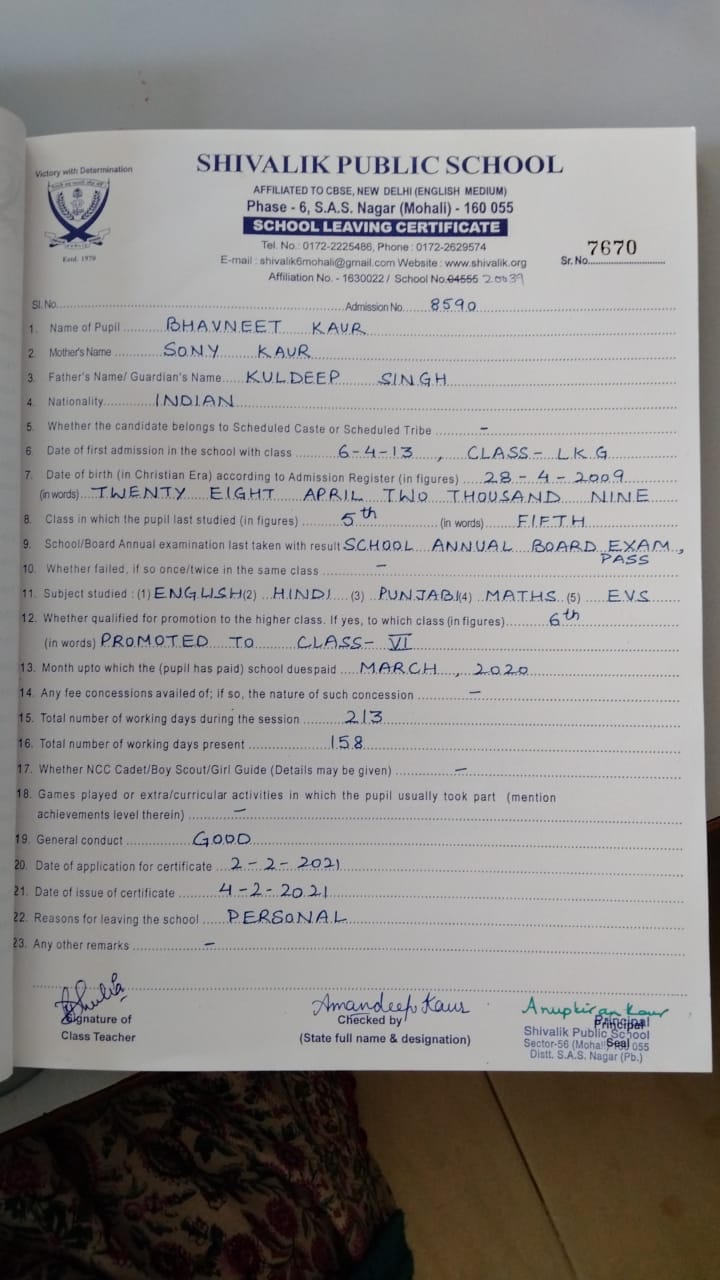 Victory with Determination
Estd. 1970
SHIVALIK PUBLIC SCHOOL
AFFILIATED TO CBSE, NEW DELHI (ENGLISH MEDIUM)
Phase - 6, S.A.S. Nagar (Mohali) - 160 055
SCHOOL LEAVING CERTIFICATE
Tel. No.: 0172-2225486, Phone : 0172-2629574
E-mail : shivalik6mohali@gmail.com Website : www.shivalik.org
Sr. No. 7670
Affiliation No. - 1630022 / School No. 04555 20039
Sl. No. Admission No. 8590
1. Name of Pupil BHAVNEET KAUR
2. Mother's Name SONY KAUR
3. Father's Name/ Guardian's Name KULDEEP SINGH
4. Nationality INDIAN
5. Whether the candidate belongs to Scheduled Caste or Scheduled Tribe –
6. Date of first admission in the school with class 6-4-13, CLASS- LKG
7. Date of birth (in Christian Era) according to Admission Register (in figures) 28-4-2009
(in words) TWENTY EIGHT APRIL TWO THOUSAND NINE
8. Class in which the pupil last studied (in figures) 5th (in words) FIFTH
9. School/Board Annual examination last taken with result SCHOOL ANNUAL BOARD EXAM,
PASS
10. Whether failed, if so once/twice in the same class –
11. Subject studied : (1) ENGLISH (2) HINDI (3) PUNJABI (4) MATHS (5) EVS
12. Whether qualified for promotion to the higher class. If yes, to which class (in figures) 6th
(in words) PROMOTED TO CLASS- VI
13. Month upto which the (pupil has paid) school duespaid MARCH, 2020
14. Any fee concessions availed of; if so, the nature of such concession –
15. Total number of working days during the session 213
16. Total number of working days present 158
17. Whether NCC Cadet/Boy Scout/Girl Guide (Details may be given) –
18. Games played or extra/curricular activities in which the pupil usually took part (mention
achievements level therein) –
19. General conduct GOOD
20. Date of application for certificate 2-2-2021
21. Date of issue of certificate 4-2-2021
22. Reasons for leaving the school PERSONAL
23. Any other remarks –
Signature of
Class Teacher
Amandeep Kaur
Checked by
(State full name & designation)
Anupkiran Kaur
Principal
Principal
Shivalik Public School
Seal
Sector-56 (Mohali) 160 055
Distt. S.A.S. Nagar (Pb.)